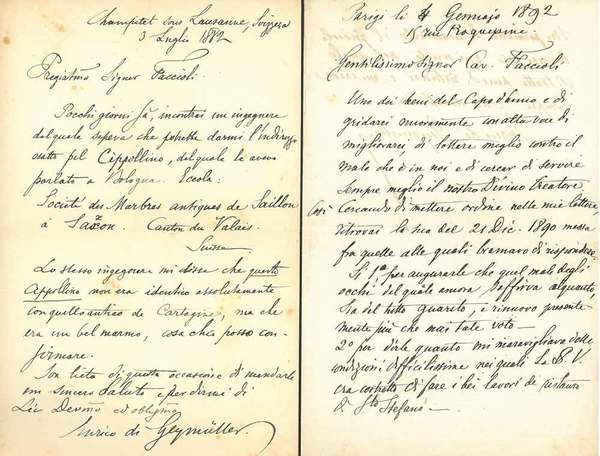 Champitet sous Lausanne, Svizzera
3 Luglio 1882
Pregiatmo Signor Faccioli.
Pochi giorni fà, incontrai un ingegnere
del quale sapeva che potrebbe darmi l'indirizzo
esatto pel Cippollino, del quale le aveva
parlato a Bologna. Eccola:
Société des Marbres antiques de Saillon
à Saxon. Canton du Valais.
Suisse
Lo stesso ingegnere mi disse che questo
Cippollino non era identico assolutamente
con quello antico de Cartagine, ma che
era un bel marmo, cosa che posso con-
firmare.
Son lieto di questa occasione di mandarle
un sincero saluto e per dirmi di
Lei Devmo ed obbligmo
Enrico di Geymüller.
Parigi li 4 Gennajo 1892
15 rue Roquépine
Gentilissimo Signor Cav. Faccioli
Uno dei beni del Capo d'anno e di
gridarci nuovamente con alta voce di
migliorarci, di lottare meglio contro il
male che è in noi e di cercar di servire
sempre meglio il nostro Divino Creatore.
Così Cercando di mettere ordine nelle mie lettere,
ritrovai la sua del 21 Dic. 1890 messa
fra quelle alle quali bramavo di rispondere.
Si 1º per augurarle che quel male degli
occhi del quale ancora soffriva alquanto,
sia del tutto guarito, e rinnovo presente-
mente più che mai tale voto —
2º per dirle quanto mi maravigliavo delle
condizioni difficilissime nei quali la S. V.
era costretto di fare i bei lavori de restauro
di Sto Stefano —